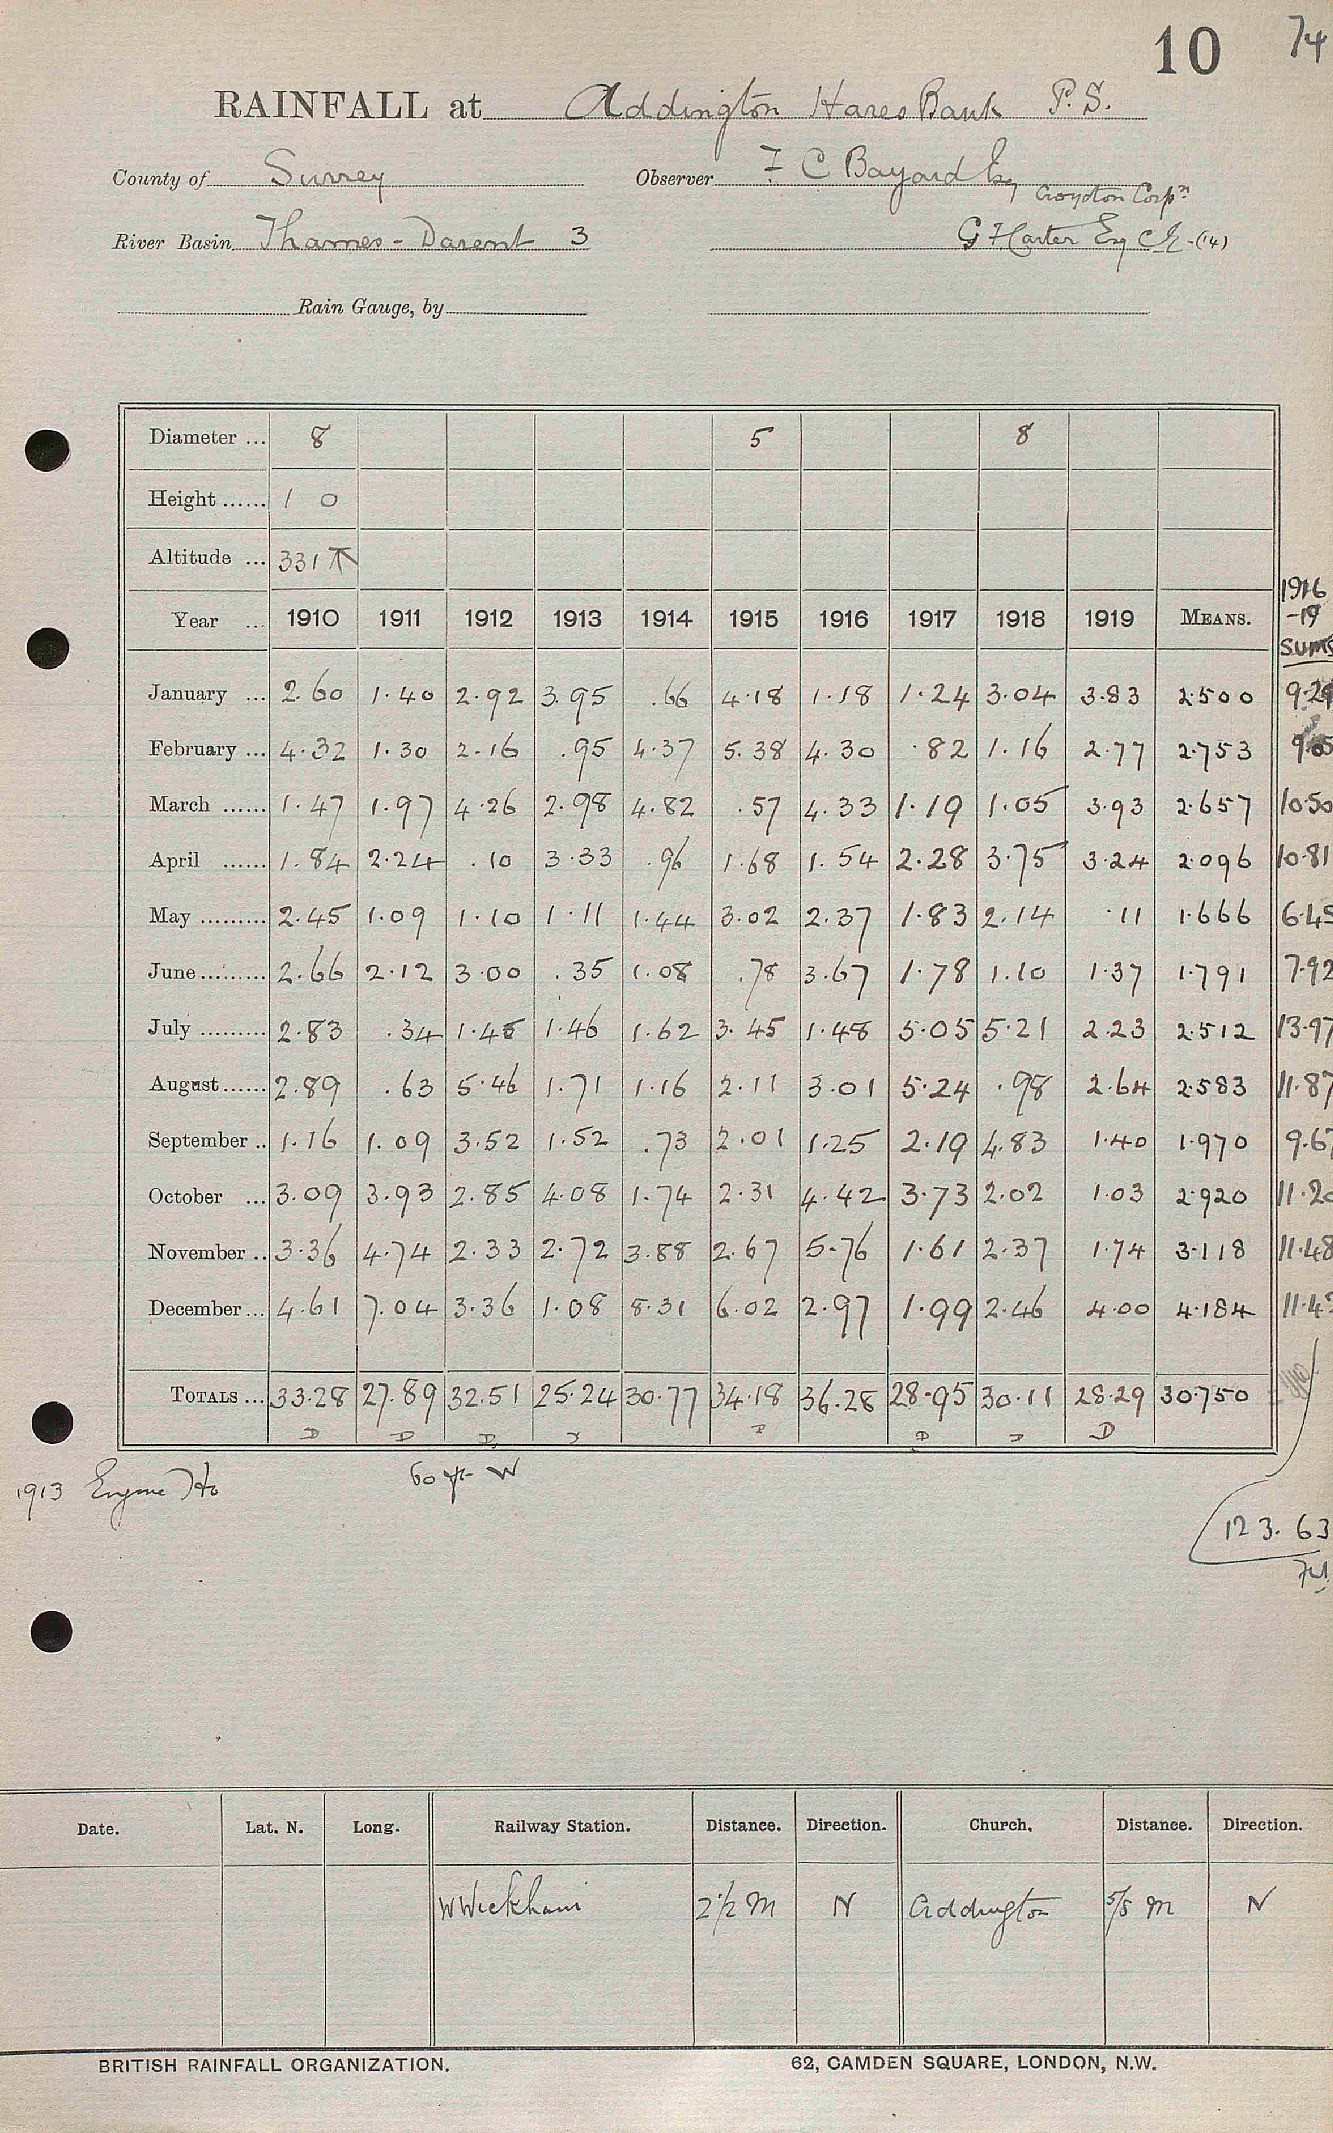 10 74
RAINFALL at Addington Hares Bank P.S.
County of Surrey Observer F C Bayard Esq
Croydon Corpn
River Basin Thames - Darent 3 G F Carter Esq CE - (14)
Rain Gauge, by
Diameter ... 8 5 8
Height ...... 1 0
Altitude ... 331
1916
-19
Sums
Year ... 1910 1911 1912 1913 1914 1915 1916 1917 1918 1919 MEANS.
January ... 2.60 1.40 2.92 3.95 .66 4.18 1.18 1.24 3.04 3.83 2.500 9.29
February ... 4.32 1.30 2.16 .95 4.37 5.38 4.30 .82 1.16 2.77 2.753 9.05
March ...... 1.47 1.97 4.26 2.98 4.82 .57 4.33 1.19 1.05 3.93 2.657 10.50
April ...... 1.84 2.24 .10 3.33 .96 1.68 1.54 2.28 3.75 3.24 2.096 10.81
May ......... 2.45 1.09 1.10 1.11 1.44 3.02 2.37 1.83 2.14 .11 1.666 6.45
June ......... 2.66 2.12 3.00 .35 1.08 .78 3.67 1.78 1.10 1.37 1.791 7.92
July ......... 2.83 .34 1.45 1.46 1.62 3.45 1.48 5.05 5.21 2.23 2.512 13.97
August ...... 2.89 .63 5.46 1.71 1.16 2.11 3.01 5.24 .98 2.64 2.583 11.87
September .. 1.16 1.09 3.52 1.52 .73 2.01 1.25 2.19 4.83 1.40 1.970 9.67
October ... 3.09 3.93 2.85 4.08 1.74 2.31 4.42 3.73 2.02 1.03 2.920 11.20
November .. 3.36 4.74 2.33 2.72 3.88 2.67 5.76 1.61 2.37 1.74 3.118 11.48
December ... 4.61 7.04 3.36 1.08 8.31 6.02 2.97 1.99 2.46 4.00 4.184 11.42
TOTALS ... 33.28 27.89 32.51 25.24 30.77 34.18 36.28 28.95 30.11 28.29 30.750
D D D D D D D D
1913 Engine Ho 60 yr W
123.63
Date. Lat. N. Long. Railway Station. Distance. Direction. Church. Distance. Direction.
W Wickham 2 1/2 M N Addington 5/8 M N
BRITISH RAINFALL ORGANIZATION. 62, CAMDEN SQUARE, LONDON, N.W.